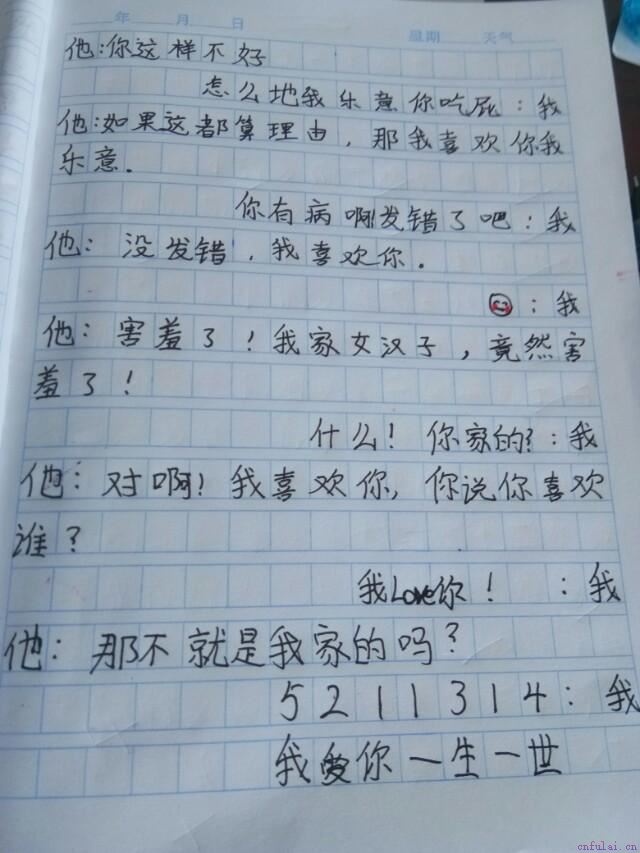 年 月 日 星期 天气
他:你这样不好
怎么地我乐意你吃屁:我
他:如果这都算理由,那我喜欢你我
乐意.
你有病啊!发错了吧:我
他:没发错,我喜欢你.
:我
他:害羞了!我家女汉子,竟然害
羞了!
什么!你家的?:我
他:对啊!我喜欢你,你说你喜欢
谁?
我Love你!:我
他:那不就是我家的吗?
5211314:我
我爱你一生一世
cnfulai.cn